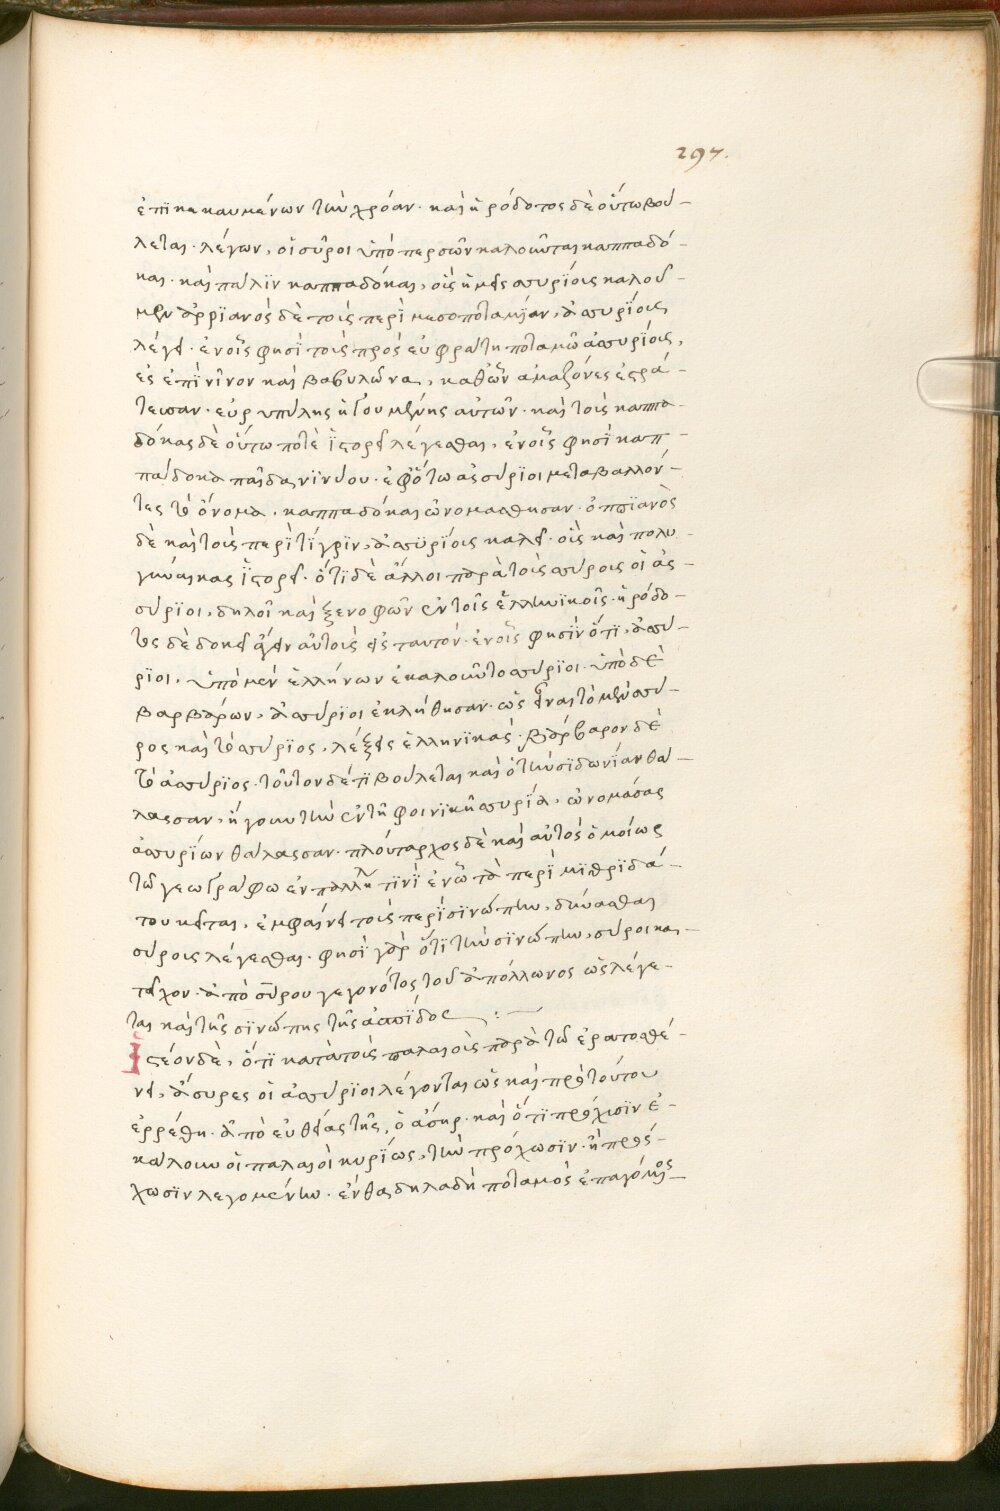 297.
ἐπικεκαυμένων τὴν χρόαν· καὶ ἡρόδοτος δὲ οὕτω βού-
λεται· λέγων, οἱ σύροι ὑπὸ περσῶν καλοῦνται καππαδό-
και· καὶ πάλϊν καππαδόκαι, οἷς ἡμεῖς συρίοις καλοῦ-
μεν ἀρριανὸς δὲ τοὺς περὶ μεσοποταμΐαν, ἀσυρΐοις
λέγει· ἐν οἷς φησὶ τοὺς πρὸς εὐφράτη ποταμῶ ἀσσυρΐοις,
ἐς ἐπὶ νῖνον καὶ βαβυλῶνα, καθ' ὧν ἀμαζόνες ἐστρά-
τευσαν· εὐρυπύλης ἡγουμένης αὐτῶν· καὶ τοὺς καππα-
δόκας δὲ οὕτω ποτὲ ἱστορεῖ λέγεσθαι, ἐν οἷς φησὶ καπ-
πάδοκα παῖδα νϊνύου· ἐφ' ὅτω ἀσσύρϊοι μεταβαλλόν-
τες τὸ ὄνομα· καππαδόκαι ὠνομάσθησαν· ὀππϊανὸς
δὲ καὶ τοὺς περὶ τίγρϊν, ἀσσυρΐοις καλεῖ· οἷς καὶ πολυ-
γύναικας ἱστορεῖ· ὅτϊ δὲ ἄλλοι παρὰ τοὺς σύροις οἱ ἀσ-
σύρϊοι, δηλοῖ καὶ ξενοφῶν ἐν τοῖς ἑλληνϊκοῖς· ἡρόδο-
τος δὲ δοκεῖ ἄγειν αὐτοὺς εἰς ταυτόν· ἐν οἷς φησὶν ὅτι, ἀσύ-
ρϊοι, ὑπὸ μὲν ἑλλήνων ἐκαλοῦντο σύρϊοι· ὑπὸ δὲ
βαρβάρων, ἀσσύρϊοι ἐκλήθησαν· ὡς εἶναι τὸ μὲν σύ-
ρος καὶ τὸ σύρϊος, λέξεις ἑλληνϊκάς· βάρβαρον δὲ
τὸ ἀσσύρϊος· τοῦτον δέ τι βούλεται καὶ ὁ τὴν σϊδωνίαν θά-
λασσαν, ἤγουν τὴν ἐν τῆ φοινϊκῆ συρία, ὠνομάσας
ἀσυρίων θάλασσαν· πλούταρχος δὲ καὶ αὐτὸς ὁμοίως
τῶ γεωγράφω ἐν πολλῆ τϊνΐ ἐν ὧ τὰ περὶ μϊθρϊδά-
του κεῖται, ἐμφαίνει τοὺς περὶ σϊνώπην, δύνασθαι
σύροις λέγεσθαι· φησὶ γὰρ ὅτϊ τὴν σϊνώπην, σύροι κα-
τεῖχον· ἀπὸ σύρου γεγονότος τοῦ ἀπόλλωνος ὡς λέγε-
ται καὶ τῆς σϊνώπης τῆς ἀσωπΐδος :
Ἰστέον δὲ, ὅτϊ κατὰ τοὺς παλαιοὺς παρὰ τῶ ἐρατοσθέ-
νει, ἄσυρες οἱ ἀσσύρϊοι λέγονται ὡς καὶ πρὸ τούτου
ἐρρέθη· ἀπὸ εὐθείας τῆς, ὁ ἄσηρ· καὶ ὅτϊ πρόχυσϊν ἐ-
κάλουν οἱ παλαιοὶ κυρίως, τὴν πρόχωσϊν· ἢ πρόσ-
χωσϊν λεγομένην· ἔνθα δηλαδὴ ποταμὸς ἐπαγόμενος